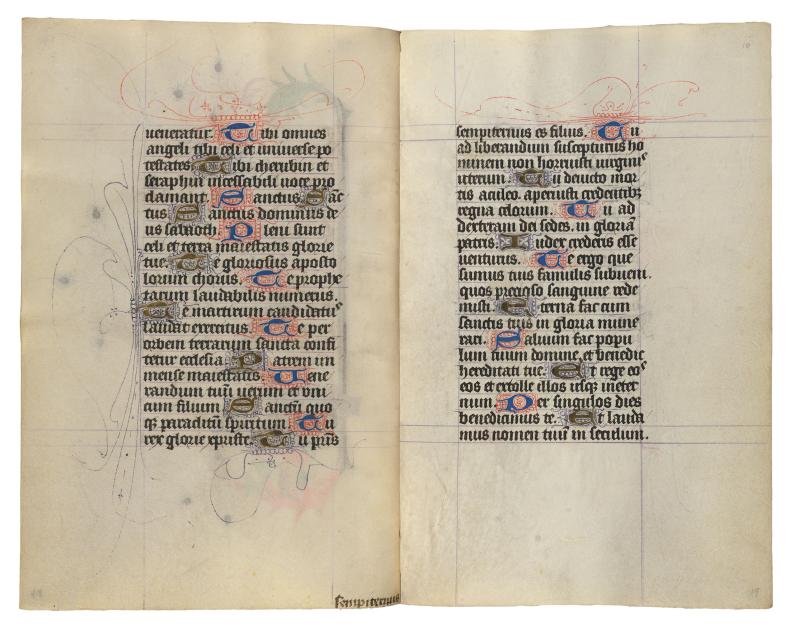 ueneratur. Tibi omnes
angeli tibi celi et uniuerse po
testates. Tibi cherubin et
seraphin incessabili uoce pro
clamant. Sanctus. Sāc
tus. Sanctus dominus de
us sabaoth. Pleni sunt
celi et terra maiestatis glorie
tue. Te gloriosus aposto
lorum chorus. Te prophe
tarum laudabilis numerus.
Te martirum candidatꝰ
laudat exercitus. Te per
orbem terrarum sancta confi
tetur ecclesia. Patrem im
mense maiestatis. Uene
randum tuū uerum et vni
cum filium. Sanctum quo
qꝫ paraclitum spiritum. Tu
rex glorie xpriste. Tu pr̄is
sempiternus
10
sempiternus es filius. Tu
ad liberandum suscepturus ho
minem non horruisti uirginiˢ
uterum. Tu deuicto mor
tis aculeo. aperuisti credentibꝫ
regna celorum. Tu ad
dexteram dei sedes. in gloriā
patris. Iudex crederis esse
uenturus. Te ergo que
sumus tuis famulis subueni.
quos precioso sanguine rede
misti. Eterna fac cum
sanctis tuis in gloria mune
rari. Saluum fac popu
lum tuum domine, et benedic
hereditati tue. Et rege eoˢ
eos et extolle illos usqꝫ ineter
num. Per singulos dies
benedicimus te. Et lauda
mus nomen tuū in seculum.